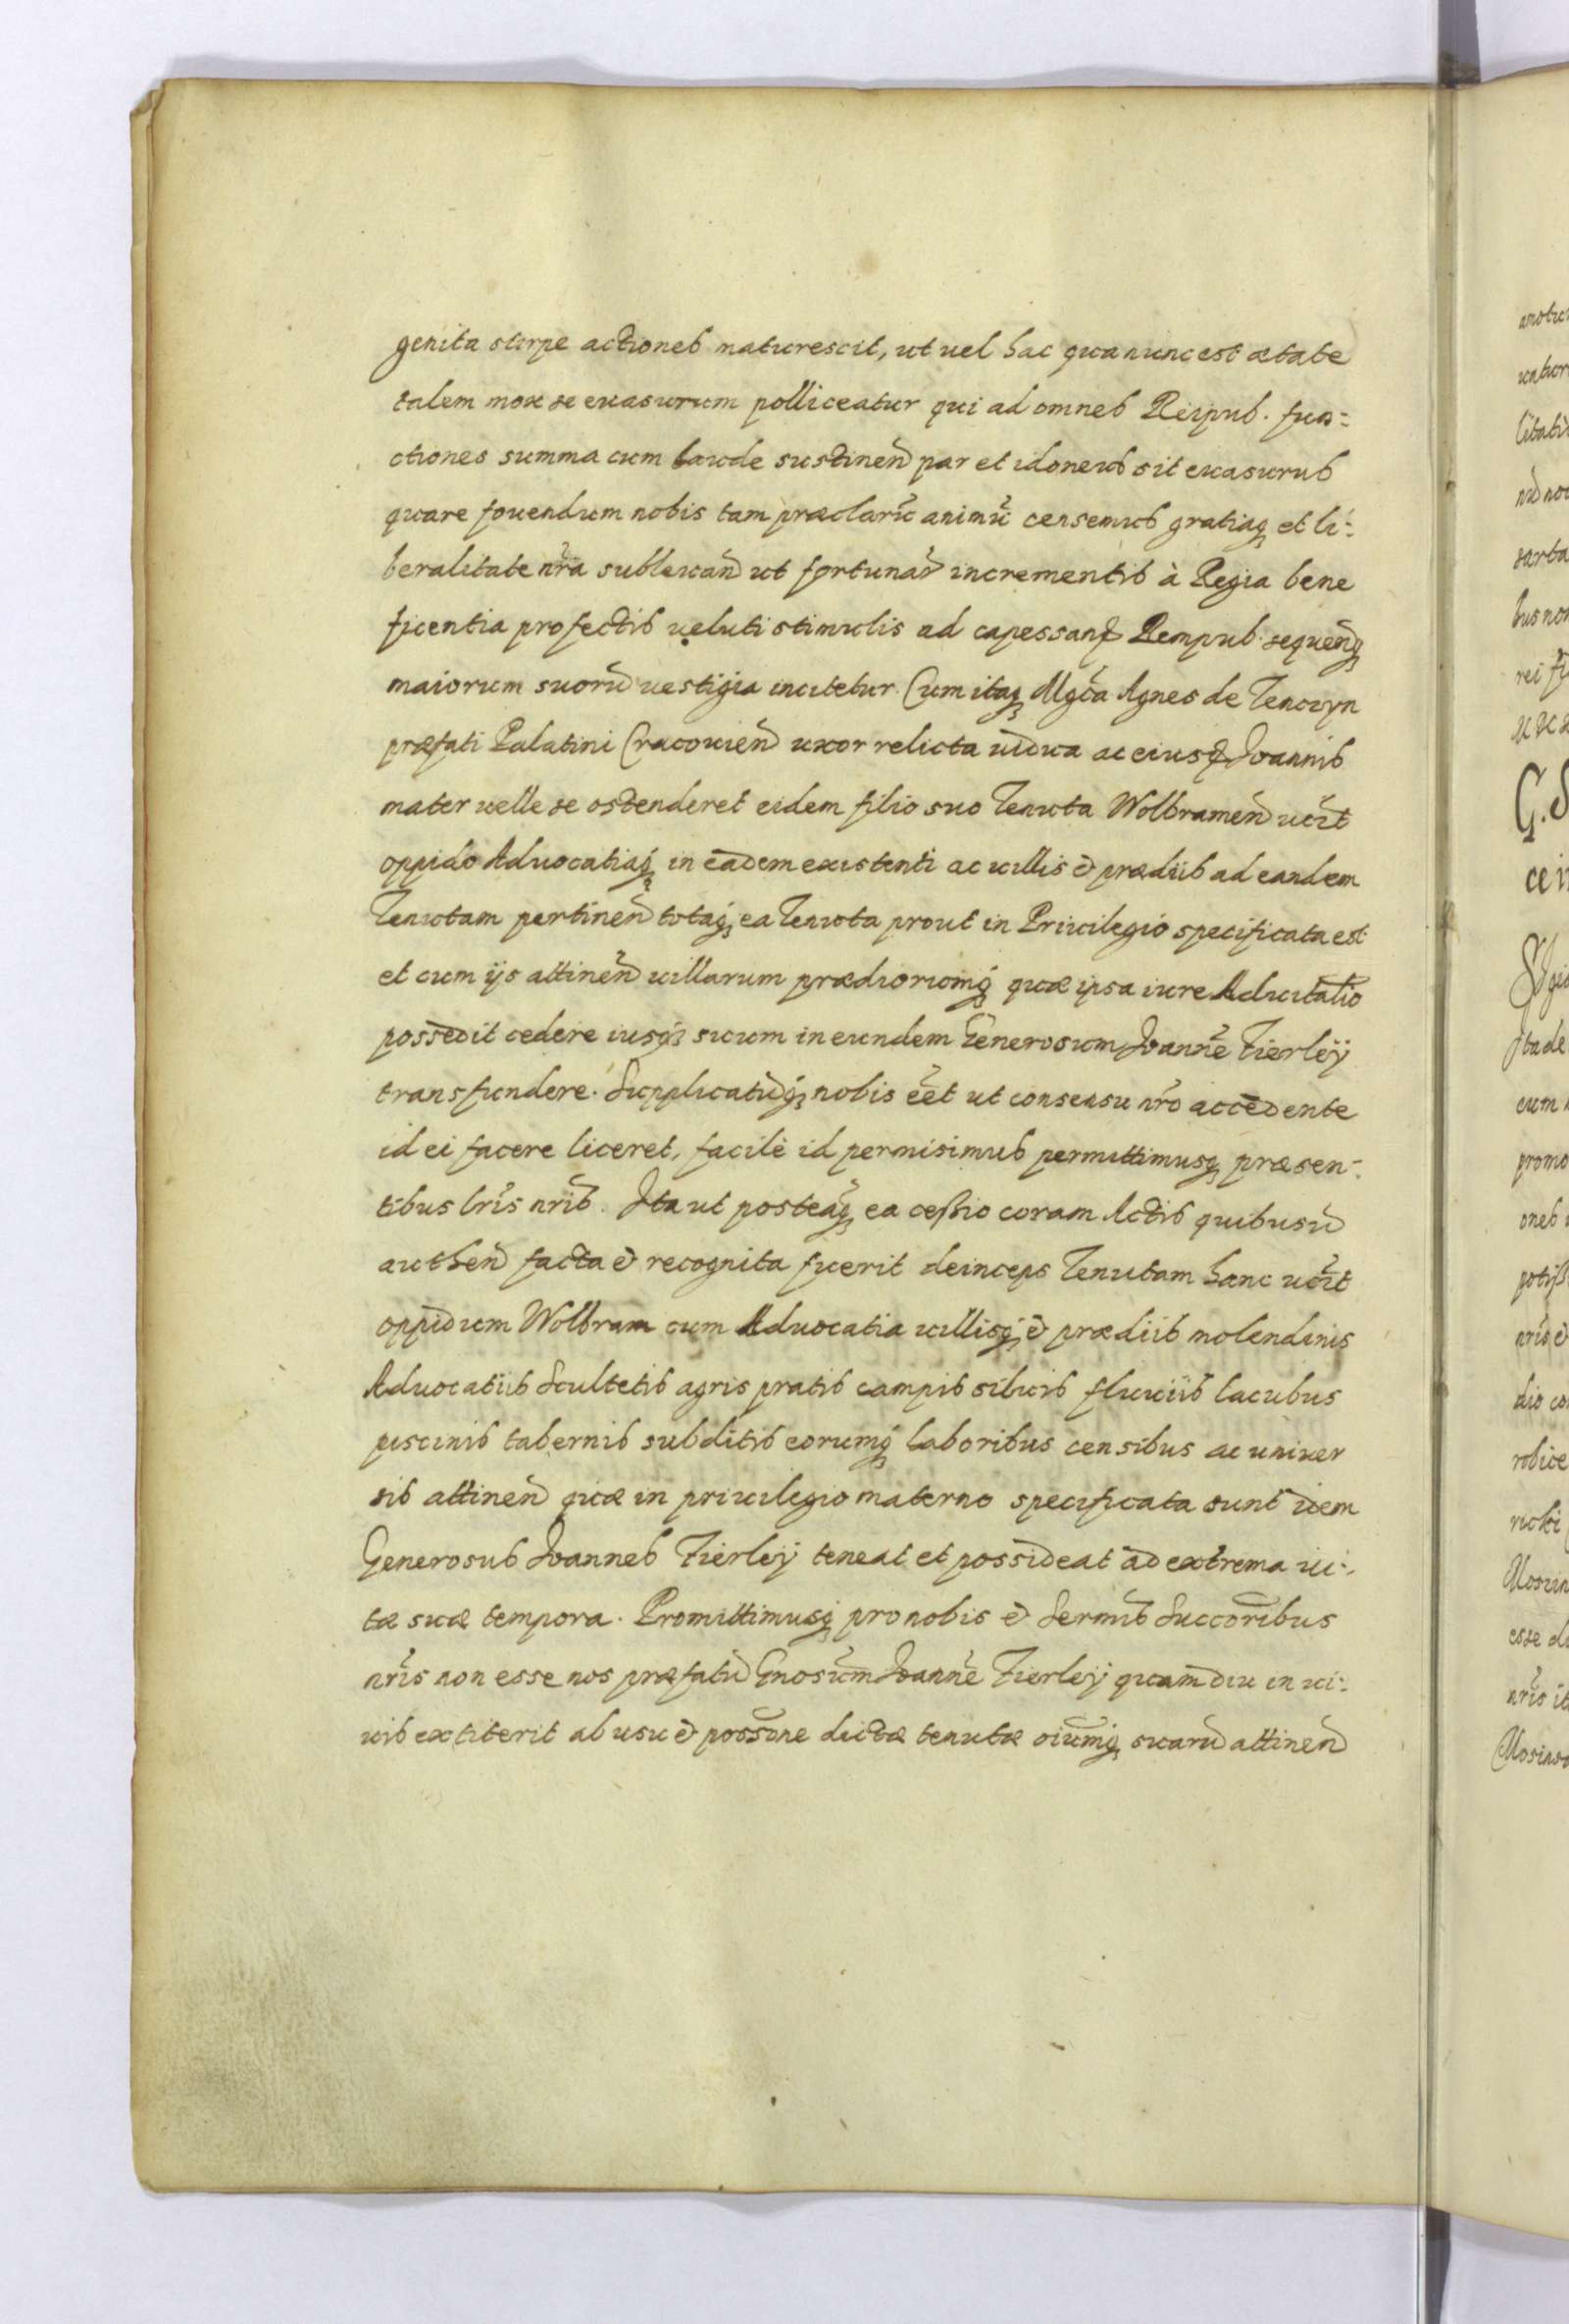 genita stirpe actiones maturescit, ut vel hac qua nunc est ætate
talem mox se evasurum polliceatur qui ad omnes Reipub. fun=
ctiones summa cum laude sustinen̄ par et idoneus sit evasurus
quare fovendum nobis tam præclarū animū censemus gratiaq₃ et li=
beralitate nr̄a sublevan̄ ut fortunar̄ incrementis à Regia bene
ficentia profectis veluti stimulis ad capessand̄ Rempub. sequenq₃
maiorum suorū vestigia incitetur. Cum itaq₃ Mgc̄a Agnes de Tenczyn
præfati Palatini Cracovien̄ uxor relicta vidua ac eiusd̄ Joannis
mater velle se ostenderet eidem filio suo Tenuta Wolbramen̄ vc̄z̄t
oppido Advocatiaq₃ in eadem existenti ac villis & prædiis ad eandem
Tenutam pertinen̄ totaq₃ ea Tenuta prout in Privilegio specificata est
et cum ijs attinen̄ villarum prædiorumq₃ quæ ipsa iure Advitalitio
possedit cedere iusq₃ suum in eundem Generosum Joannē Firleÿ
transfundere. Supplicatūq₃ nobis eēt ut consensu nrō accedente
id ei facere liceret, facilè id permisimus permittimusq₃ præsen=
tibus lr̄is nr̄is. Ita ut posteaq₃ ea cessio coram Actis quibusū
authen̄ facta & recognita fuerit deinceps Tenutam hanc vc̄z̄t
oppidum Wolbram cum Advocatia villisq₃ & prædiis molendinis
Advocatiis Scultetis agris pratis campis silvis fluviis lacubus
piscinis tabernis subditis eorumq₃ laboribus censibus ac univer
sis attinen̄ quæ in privilegio materno specificata sunt idem
Generosus Joannes Firleÿ teneat et possideat ad extrema vi=
tæ suæ tempora. Promittimusq₃ pro nobis & Sermis Succoribus
nr̄is non esse nos præfatū Gnosum Joannē Firleÿ quamdiu in vi=
vis extiterit ab usu & possone dictæ tenutæ oiumq₃ suarū attinen̄